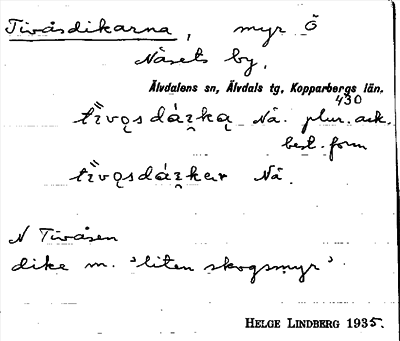 Tivåsdikarna, myr Ö
Nåsets by.
Älvdalens sn, Älvdals tg, Kopparbergs län.
430
Nå. plur. ack.
best. form
Nå.
N Tivåsen
dike m. 'liten skogsmyr'.
HELGE LINDBERG 1935.